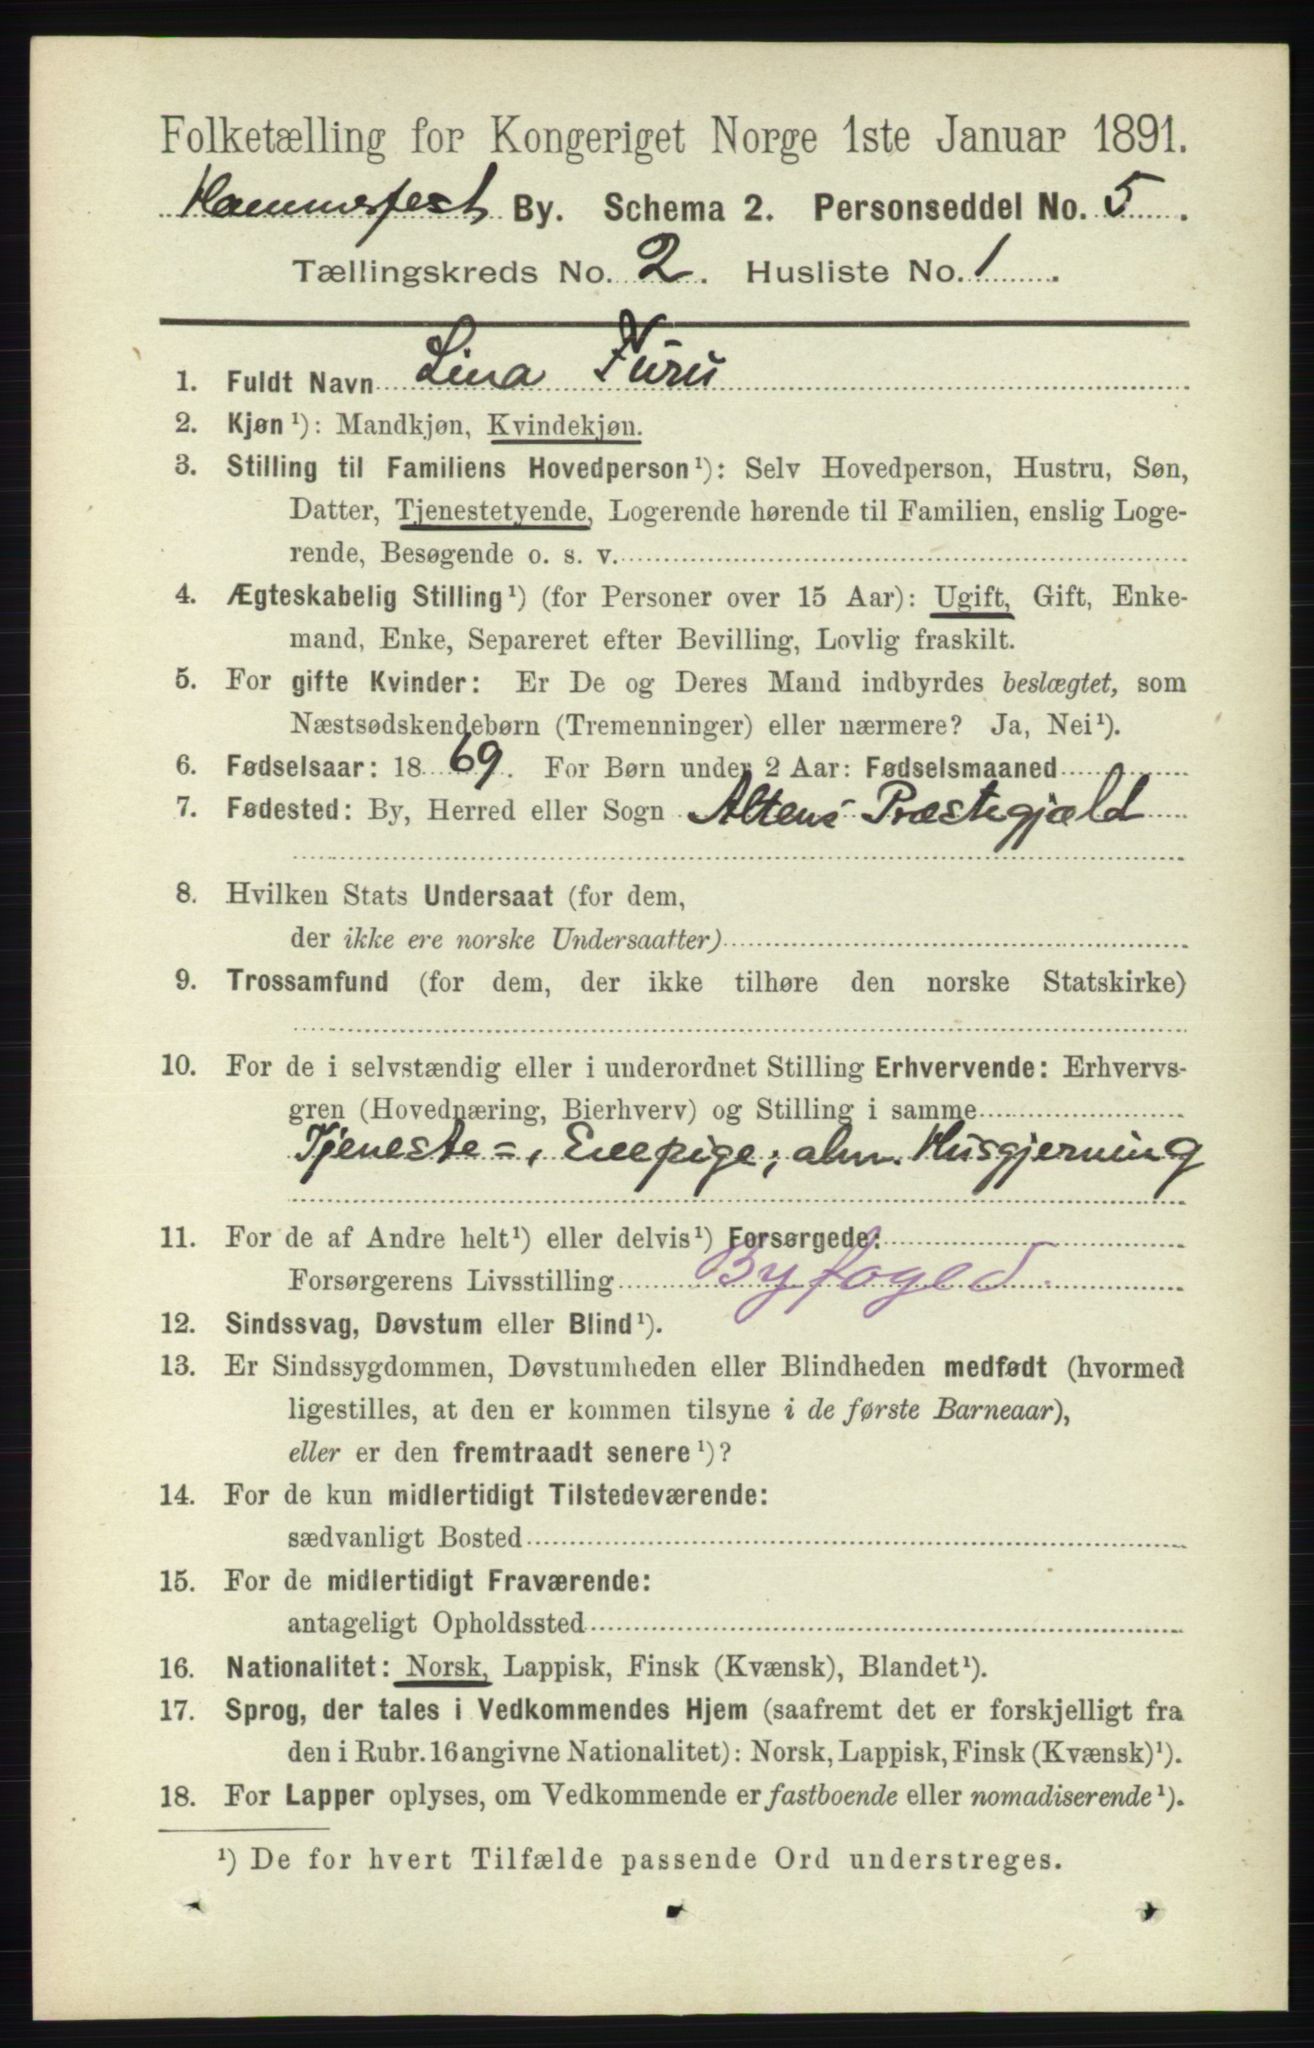 Folketælling for Kongeriget Norge 1ste Januar 1891.
Hammerfest By. Schema 2. Personseddel No. 5.
Tællingskreds No. 2. Husliste No. 1.
1. Fuldt Navn Lina Furu
2. Kjøn¹): Mandkjøn, Kvindekjøn.
3. Stilling til Familiens Hovedperson¹): Selv Hovedperson, Hustru, Søn,
Datter, Tjenestetyende, Logerende hørende til Familien, enslig Loge-
rende, Besøgende o. s. v.
4. Ægteskabelig Stilling¹) (for Personer over 15 Aar): Ugift, Gift, Enke-
mand, Enke, Separeret efter Bevilling, Lovlig fraskilt.
5. For gifte Kvinder: Er De og Deres Mand indbyrdes beslægtet, som
Næstsødskendebørn (Tremenninger) eller nærmere? Ja, Nei¹).
6. Fødselsaar: 1869. For Børn under 2 Aar: Fødselsmaaned
7. Fødested: By, Herred eller Sogn Altens Præstegjæld
8. Hvilken Stats Undersaat (for dem,
der ikke ere norske Undersaatter)
9. Trossamfund (for dem, der ikke tilhøre den norske Statskirke)
10. For de i selvstændig eller i underordnet Stilling Erhvervende: Erhvervs-
gren (Hovednæring, Bierhverv) og Stilling i samme
Tjeneste=, Enepige; alm. Husgjerning
11. For de af Andre helt¹) eller delvis¹) Forsørgede:
Forsørgerens Livsstilling Byfoged.
12. Sindssvag, Døvstum eller Blind¹).
13. Er Sindssygdommen, Døvstumheden eller Blindheden medfødt (hvormed
ligestilles, at den er kommen tilsyne i de første Barneaar),
eller er den fremtraadt senere¹)?
14. For de kun midlertidigt Tilstedeværende:
sædvanligt Bosted
15. For de midlertidigt Fraværende:
antageligt Opholdssted
16. Nationalitet: Norsk, Lappisk, Finsk (Kvænsk), Blandet¹).
17. Sprog, der tales i Vedkommendes Hjem (saafremt det er forskjelligt fra
den i Rubr. 16 angivne Nationalitet): Norsk, Lappisk, Finsk (Kvænsk)¹).
18. For Lapper oplyses, om Vedkommende er fastboende eller nomadiserende¹).
¹) De for hvert Tilfælde passende Ord understreges.